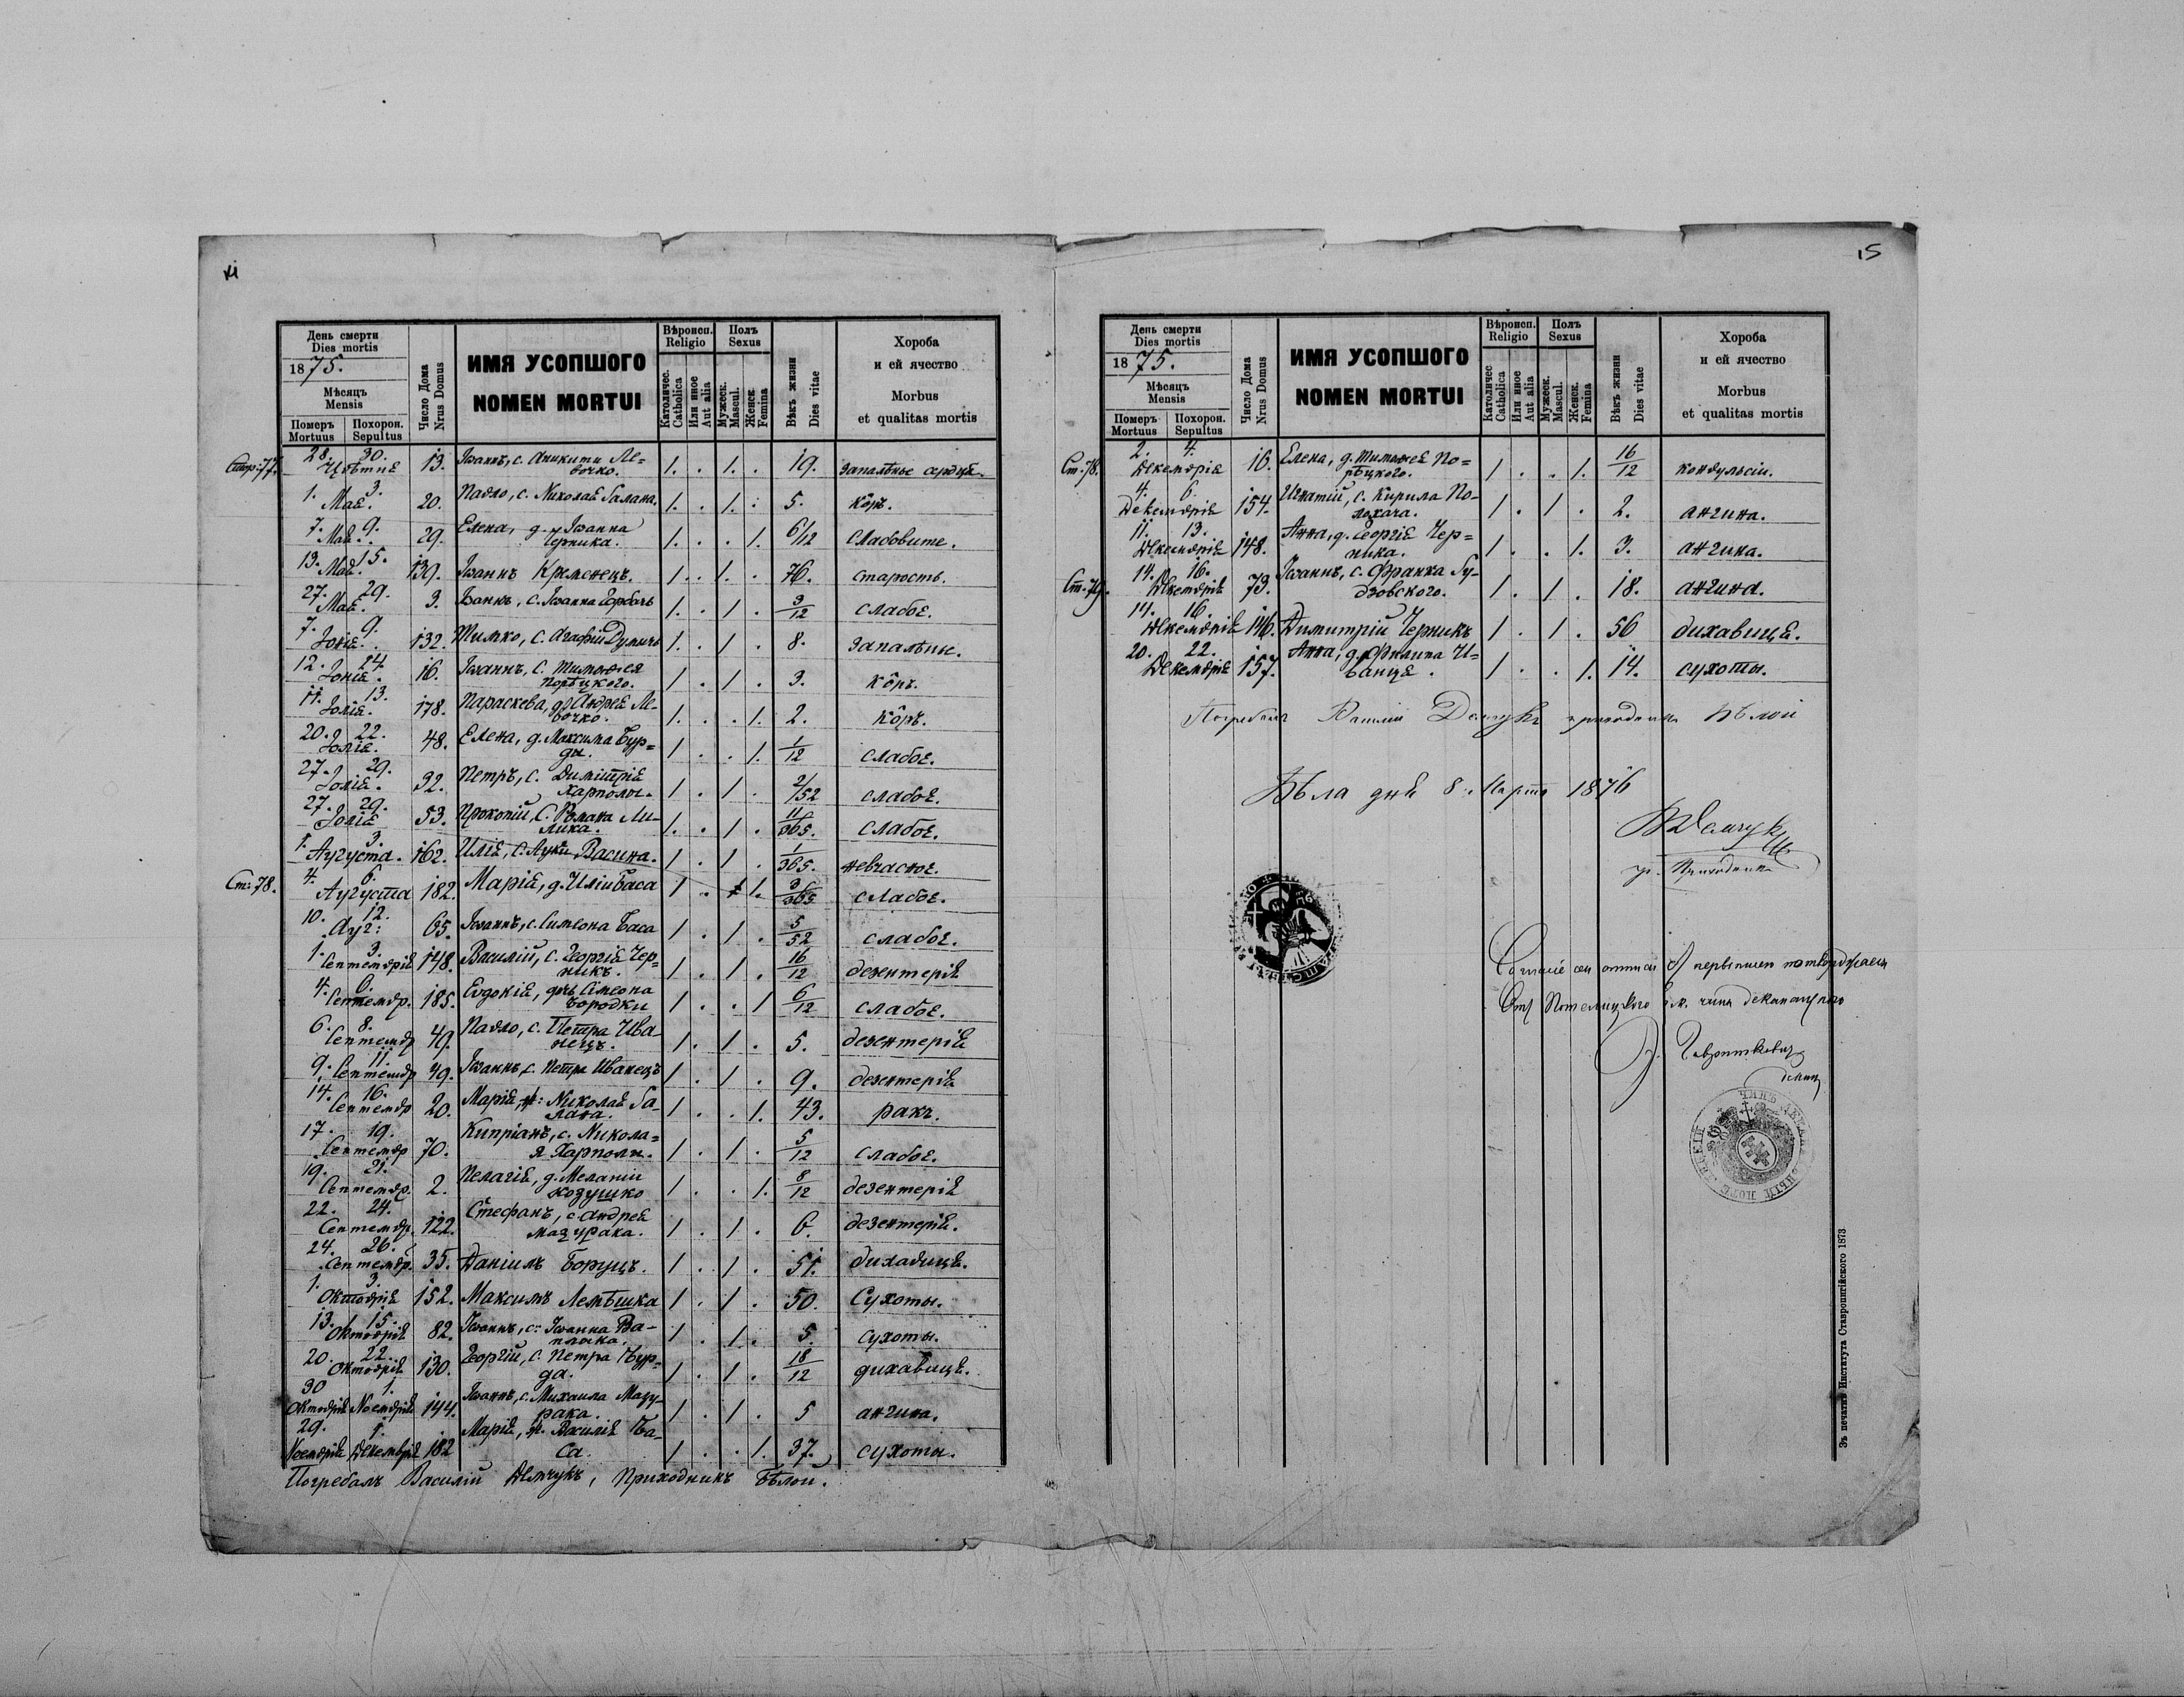 14
День смерти
Dies mortis
1875.
Мѣсяцъ
Mensis
Померъ Похорон.
Mortuus Sepultus
Число Дома
Nrus Domus
ИМЯ УСОПШОГО
NOMEN MORTUI
Вѣроисп.
Religio
Католичес.
Catholica
Или иное
Aut alia
Полъ
Sexus
Мужеск.
Mascul.
Женск.
Femina
Вѣкъ жизни
Dies vitae
Хороба
и ей ячество
Morbus
et qualitas mortis
Стр. 77.
28. 30.
Цвѣтнѣ 13. Іоаннъ, с. Аникити Ле-
вочко. 1. . 1. . 19. запалѣнье сердцѣ.
1. 3.
Маѣ. 20. Павло, с. Николаѣ Галана. 1. . 1. . 5. кôръ.
7. 9.
Маѣ. 29. Елена, д. Іоанна
Черника. 1. . . 1. 6/12 слабовите.
13. 15.
Маѣ. 139. Іоаннъ Кременецъ. 1. . 1. . 76. старость.
27. 29.
Маѣ. 3. Іоаннъ, с. Іоанна Горбачъ 1. . 1 . 3/12 слабое.
7. 9.
Юніѣ. 132. Тимко, с. Агафіи Думичъ 1. . 1 . 8. запалѣнье.
12. 24.
Юніѣ. 16. Іоаннъ, с. Тимофея
Порѣцкого. 1 . 1 . 3. кôръ.
11. 13.
Юліѣ. 178. Параскева, д. Андреѣ Ле-
вочко. 1. . . 1. 2. кôръ.
20. 22.
Юліѣ. 48. Елена, д. Максима Бур-
ды. 1 . . 1. 1/12 слабое.
27. 29.
Юліѣ. 92. Петръ, с. Димитріѣ
Харполы. 1 . 1 . 2/52 слабое.
27. 29.
Юліѣ 53. Прокопій, с. Романа Ли-
лика. 1. . 1 . 11/365. слабое.
1. 3.
Аугуста. 162. Иліѣ, с. Луки Васина. 1 . 1 . 1/365. невчасное.
Ст. 78.
4. 6.
Аугуста 182. Маріѣ, д. Иліи Баса 1 . . 1. 3/365 слабое.
10. 12.
Ауг: 65. Іоаннъ, с. Симеона Баса 1 . 1 . 5/52 слабое.
1. 3.
Септемвріѣ 148. Василій, с. Георгіѣ Чер-
никъ. 1 . 1 . 16/12 дезентеріѣ
4. 6.
Септемвр. 185. Евдокіѣ, дчь Сімеона
Бородки 1 . . 1 6/12 слабое.
6. 8.
Септемвр 49. Павло, с. Петра Ива-
нецъ. 1 . 1 . 5. дезентеріѣ
9. 11.
Септемвр 49. Іоаннъ, с. Петра Иванецъ 1 . 1 . 9. дезентеріѣ
14. 16.
Септемвр 20. Маріѣ, ж: Николаѣ Га-
лана. 1 . . 1. 43. ракъ.
17. 19.
Септемвр 70. Кипріанъ, с. Никола-
я Харполы. 1 . 1 . 5/12 слабое.
19. 21.
Септемвр. 2. Пелагіѣ, д. Меланіи
Козушко 1 . . 1. 8/12 дезентеріѣ
22. 24.
Септемвр. 122. Стефанъ, с. Андреѣ
Мазурака. 1 . 1 . 6. дезентеріѣ.
24. 26.
Септемвр. 35. Даніилъ Боруцъ. 1 . 1 . 51. дихавицѣ.
1. 3.
Октовріѣ 152. Максимъ Лемѣшка 1 . 1 . 50. Сухоты.
13. 15.
Октовріѣ 82. Іоаннъ, с: Іоанна Ва-
плака. 1 . 1. . 5. сухоты.
20. 22.
Октовріѣ 130. Георгій, с. Петра Бур-
да. 1 . 1 . 18/12 дихавицѣ.
30 1.
Октовріѣ Ноемвріѣ 144. Іоаннъ, с. Михаила Мазу-
рака. 1 . 1 . 5 ангина.
29. 1.
Ноемвріѣ Декемвріѣ 182 Маріѣ, ж. Василіѣ Ба-
са. 1 . . 1. 37. сухоты.
Погребалъ Василій Демчукъ, Приходникъ Бѣлои.
15
День смерти
Dies mortis
1875.
Мѣсяцъ
Mensis
Померъ Похорон.
Mortuus Sepultus
Число Дома
Nrus Domus
ИМЯ УСОПШОГО
NOMEN MORTUI
Вѣроисп.
Religio
Католичес
Catholica
Или иное
Aut alia
Полъ
Sexus
Мужеск.
Mascul.
Женск.
Femina
Вѣкъ жизни
Dies vitae
Хороба
и ей ячество
Morbus
et qualitas mortis
Ст. 78.
2. 4.
Декемвріѣ 16. Елена, д. Тимофеѣ По-
рѣцкого. 1 . . 1. 16/12 конвульсіи.
4. 6.
Декемвріѣ 154. Игнатій, с. Кирила По-
лохача. 1 . 1 . 2. ангина.
11. 13.
Декемвріѣ 148. Анна, д. Георгіѣ Чер-
ника. 1 . . 1. 3. ангина.
Ст. 79.
14. 16.
Декемвріѣ 73. Іоаннъ, с. Франка Гу-
дзовского. 1 . 1 . 18. ангина.
14. 16.
Декемвріѣ 146. Димитрій Черникъ 1 . 1 . 56 дихавицѣ.
20. 22.
Декемвріѣ 157. Анна, д. Филипа И-
ванцѣ. 1 . . 1. 14. сухоты.
Погребалъ Василій Демчукъ приходникъ Бѣлои
Бѣла днѣ 8. Марта 1876
ВДемчукъ
гр. Приходникъ
Отъ Потелицкого
декан
Зъ печатнѣ Института Ставропигійского 1873